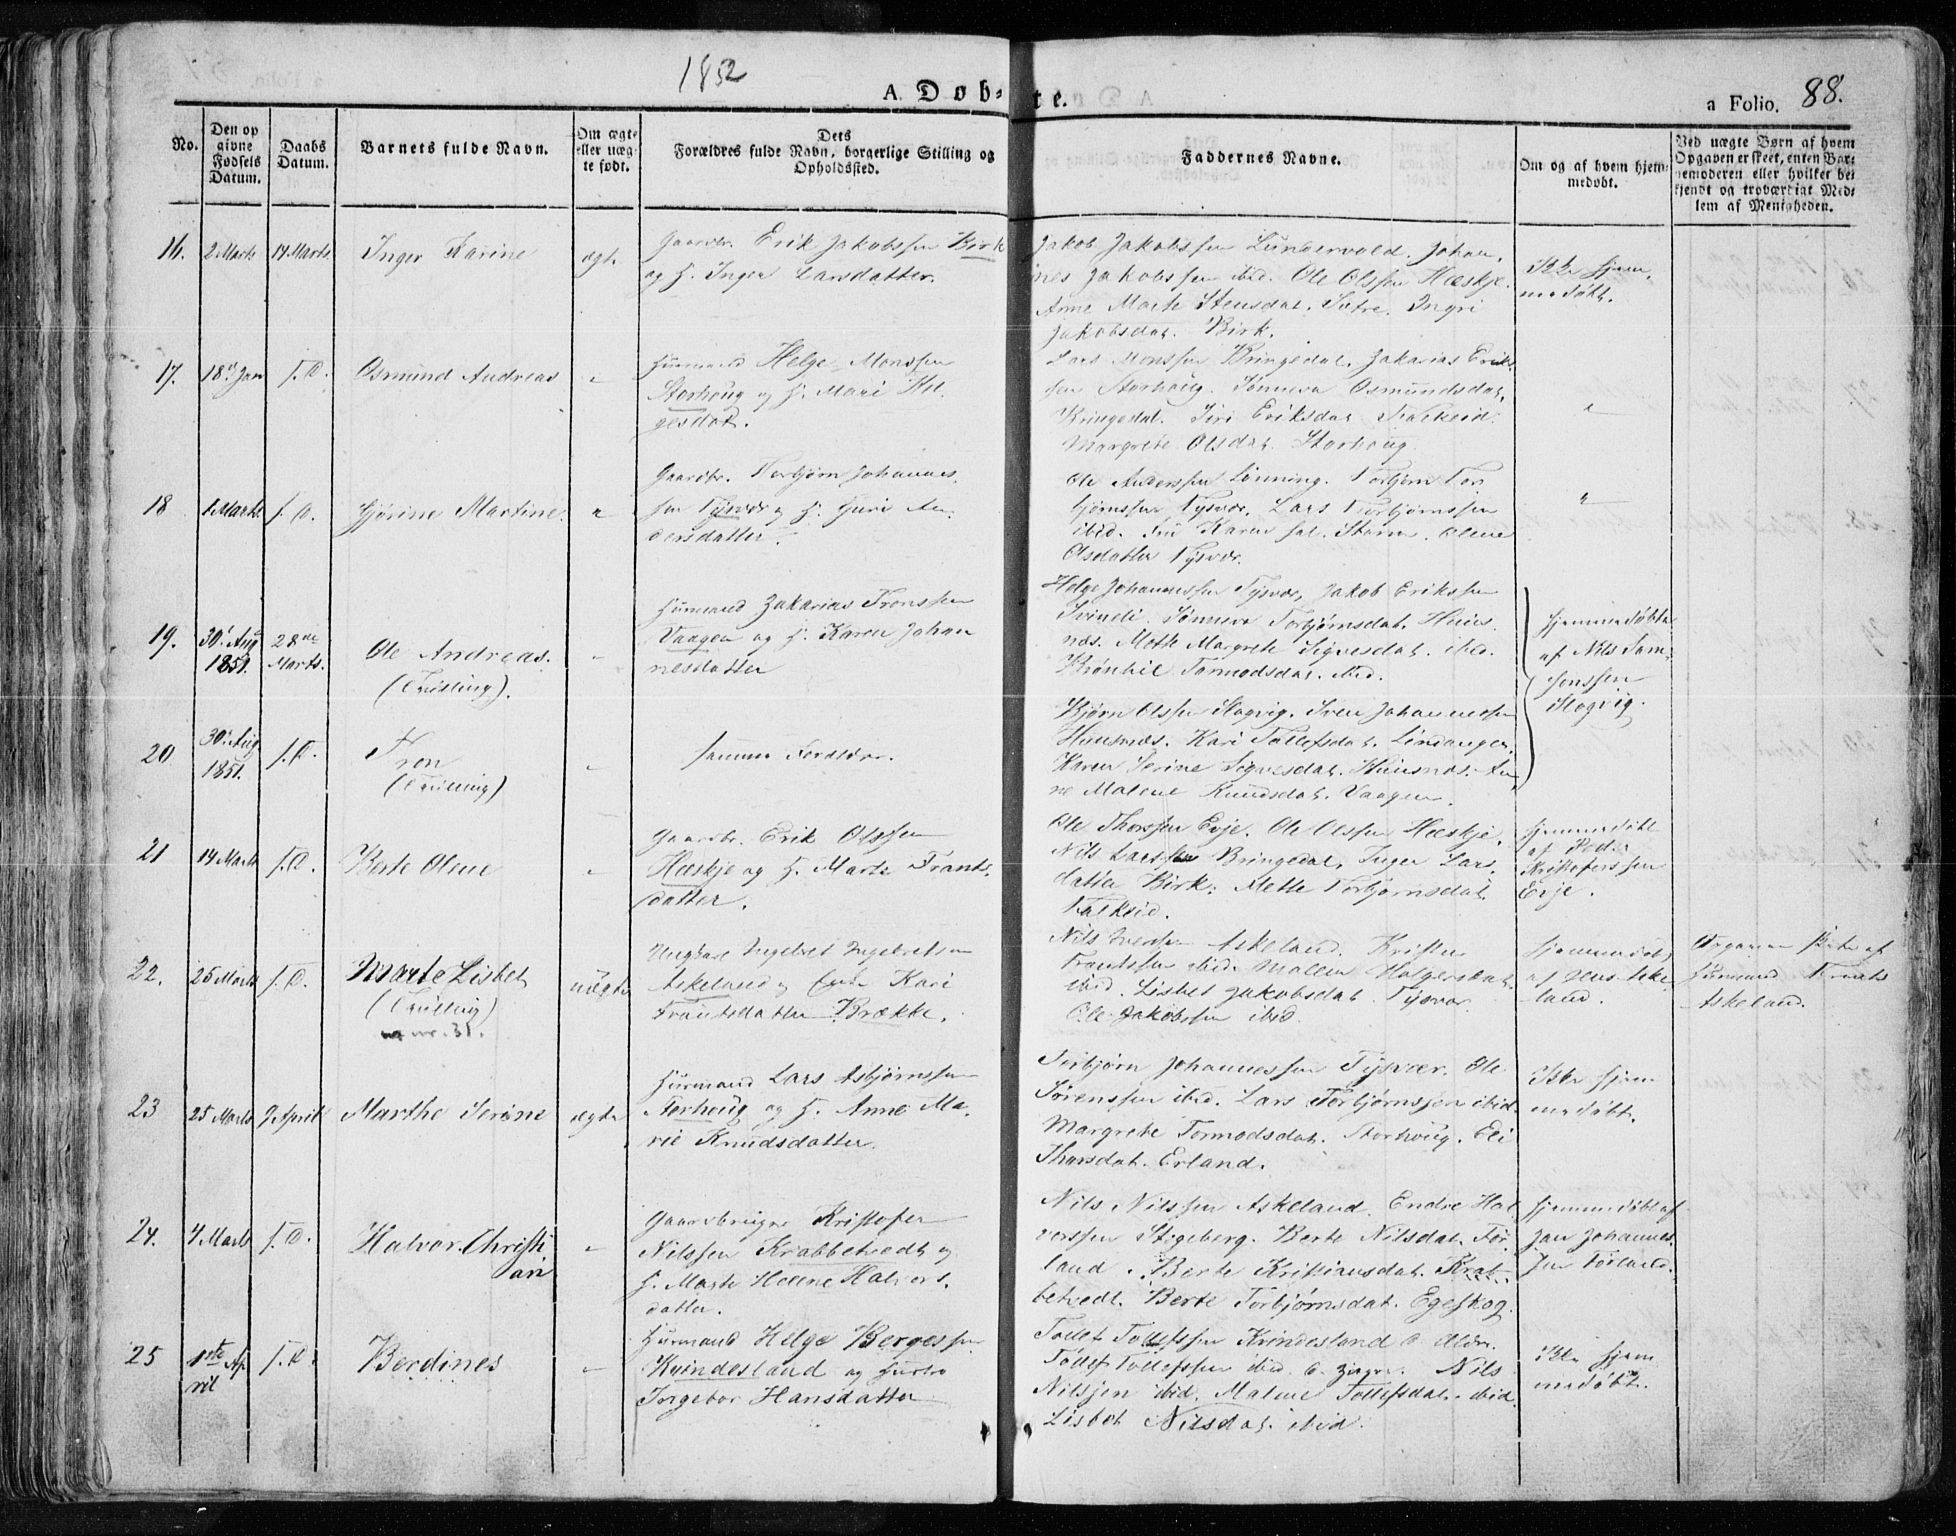 1852
A. Døb-te.
a Folio. 88.
No.
Den op
givne
Fødsels
Datum.
Daabs
Datum.
Barnets fulde Navn.
Om ægte
eller uæg-
te født.
Dets
Forældres fulde Navn, borgerlige Stilling og
Opholdssted.
Faddernes Navne.
Om og af hvem hjem-
medøbt.
Ved uægte Børn af hvem
Opgaven er skeet, enten Bar-
nemoderen eller hvilket be-
kjendt og troværdigt Med-
lem af Menigheden.
16.
2 Marts
14 Marts
Inger Karine
ægte
Gaardbr. Erik Jakobssen Birk
og H. Inger Larsdatter.
Jakob Jakobssen Lundervold. Johan-
nes Jakobssen ibid. Ole Olssen Hæskje.
Anne Marte Stensdat. Sætre. Ingri
Jakobsdat. Birk.
Ikke hjem-
medøbt.
17.
18de Jan
s. D.
Osmund Andreas
"
Huusmand Helge Monssen
Storhoug og H. Mari Hel-
gesdat.
Lars Monssen Bringedal. Zakarias Erik-
sen Storhoug. Sønneva Osmundsdat.
Bringedal. Siri Eriksdat. Falkeid.
Margrete Olsdat. Storhoug
"
18
1 Marts
s. D.
Gjørine Martine.
"
Gaardbr. Torbjørn Johannes-
sen Tysvær og H. Guri An-
dersdatter.
Ole Anderssen Lønning. Torbjørn Tor-
bjørnssen Tysvær. Lars Torbjørnssen
ibid. Olene
Olsdatter Tysvær.
"
19.
30te Aug
1851.
28de
Marts.
Ole Andreas.
(Tvilling).
"
Huusmand Zakarias Tronssen
Vaagen og H. Karen Johan
nesdatter
Helge Johannessen Tysvær, Jakob Erikssen
Svindi. Sønneva Torbjørnsdat. Huus-
næs. Mette Margrete Sigvesdat. ibid.
Brønhil Tormodsdat. ibid.
Hjemmedøbte
af Nils Sam-
sonssen
Slogvig.
20
30te Aug.
1851.
s. D.
Tron
(Tvilling)
"
samme Forældre.
Bjørn Olssen Slogvig. Sven Johannessen
Huusnæs. Kari Tollefsdat. Lindanger.
Karen Serine Sigvesdat. Huusnæs. An-
ne Malene Knudsdat. Vaagen.
21
14 Marts
s. D.
Berte Olene
"
Gaardbr. Erik Olssen
Hæskje og H. Marte Frants-
datter.
Ole Thorssen Evje. Ole Olssen Hæskje.
Nils Larssen Bringedal, Inger Lars-
datter Birk. Mette Torbjørnsdat.
Falkeid.
Hjemmedøbt
af Peder
Kristoferssen
Evje.
22.
25 Marts
s. D.
Marte Lisbet
(Tvilling)
og nr. 31.
uægte
Ungkarl Ingebret Ingebretsen
Askeland og Enke Kari
Frantsdatter Brække.
Nils Iversen Askeland. Kristen
Frantssen ibid. Malene Holgersdat.
ibid. Lisbet Jakobsdat. Tysvær
Ole Jakobssen ibid.
Hjemmedøbt
af Jens Aske-
land.
Opgaven skete af
Huusmand Frants
Askeland.
23
25 Marts
7 April
Marthe Serine
ægte
Huusmand Lars Asbjørnssen
Storhoug og H. Anne Ma-
rie Knudsdatter.
Torbjørn Johannessen Tysvær. Ole
Sørenssen ibid. Lars Torbjørnssen ibid.
Margrete Tormodsdat. Storhoug. Eli
Thorsdat. Erland.
Ikke hjem
medøbt.
24.
4 Marts
s. D.
Halvor Christi-
an
"
Gaardbruger Kristofer
Nilssen Krabbetvedt og
H. Marte Helene Halvors-
datter.
Nils Nilssen Askeland. Endre Hal
vorssen Stigeberg. Berte Nilsdat. Før-
land. Berte Kristiansdat. Krab-
betvedt. Berte Torbjørnsdat. Egeskog.
Hjemmedøbt af
Jan Johannes-
sen Førland.
25
1ste Ap-
ril
s. D.
Berdines
"
Huusmand Helge Bergessen
Kvindesland og Hustro
Ingebor Hansdatter
Tollef Tollefssen Kvindesland d. Ældre.
Tollef Tollefssen ibid. d. Yngre. Nils
Nilssen ibid. Malene Tollefsdat. ibid.
Lisbet Nilsdat. ibid.
Ikke hjem
medøbt.